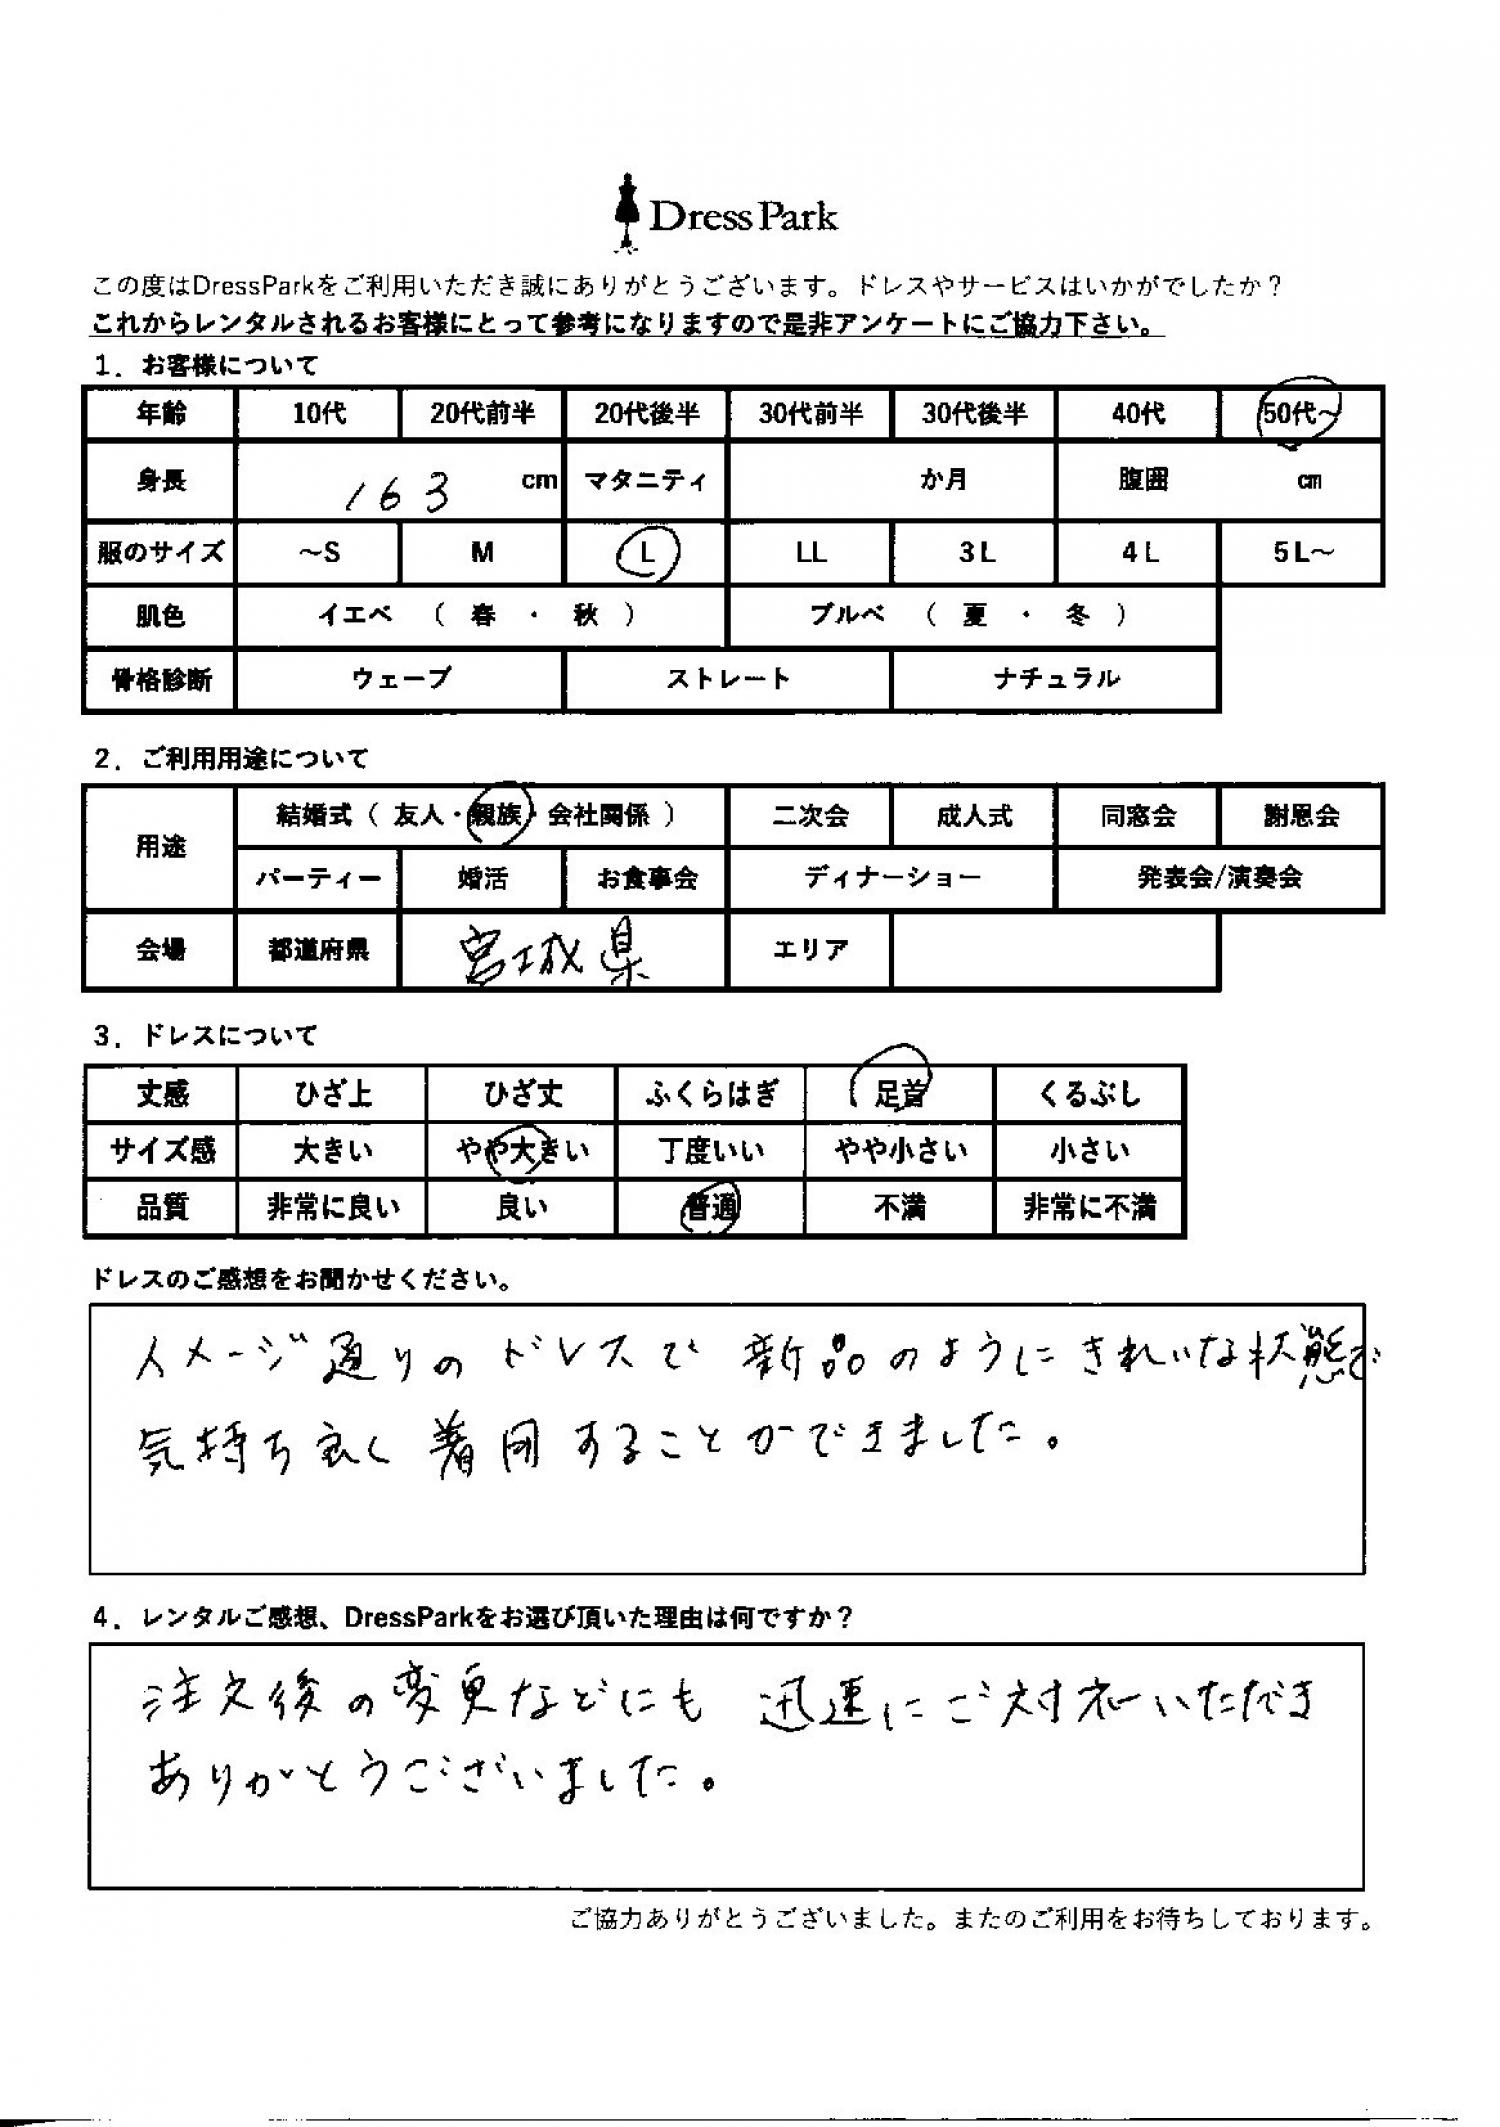 Dress Park
この度はDressParkをご利用いただき誠にありがとうございます。ドレスやサービスはいかがでしたか？
これからレンタルされるお客様にとって参考になりますので是非アンケートにご協力下さい。
1．お客様について
年齢 10代 20代前半 20代後半 30代前半 30代後半 40代 50代～
身長 163 cm マタニティ か月 腹囲 cm
服のサイズ ～S M L LL 3L 4L 5L～
肌色 イエベ （ 春 ・ 秋 ） ブルベ （ 夏 ・ 冬 ）
骨格診断 ウェーブ ストレート ナチュラル
2．ご利用用途について
用途 結婚式（ 友人・親族・会社関係 ） 二次会 成人式 同窓会 謝恩会
パーティー 婚活 お食事会 ディナーショー 発表会/演奏会
会場 都道府県 宮城県 エリア
3．ドレスについて
丈感 ひざ上 ひざ丈 ふくらはぎ 足首 くるぶし
サイズ感 大きい やや大きい 丁度いい やや小さい 小さい
品質 非常に良い 良い 普通 不満 非常に不満
ドレスのご感想をお聞かせください。
イメージ通りのドレスで 新品のようにきれいな状態で
気持ち良く着用することができました。
4．レンタルご感想、DressParkをお選び頂いた理由は何ですか？
注文後の変更などにも 迅速にご対応いただき
ありがとうございました。
ご協力ありがとうございました。またのご利用をお待ちしております。